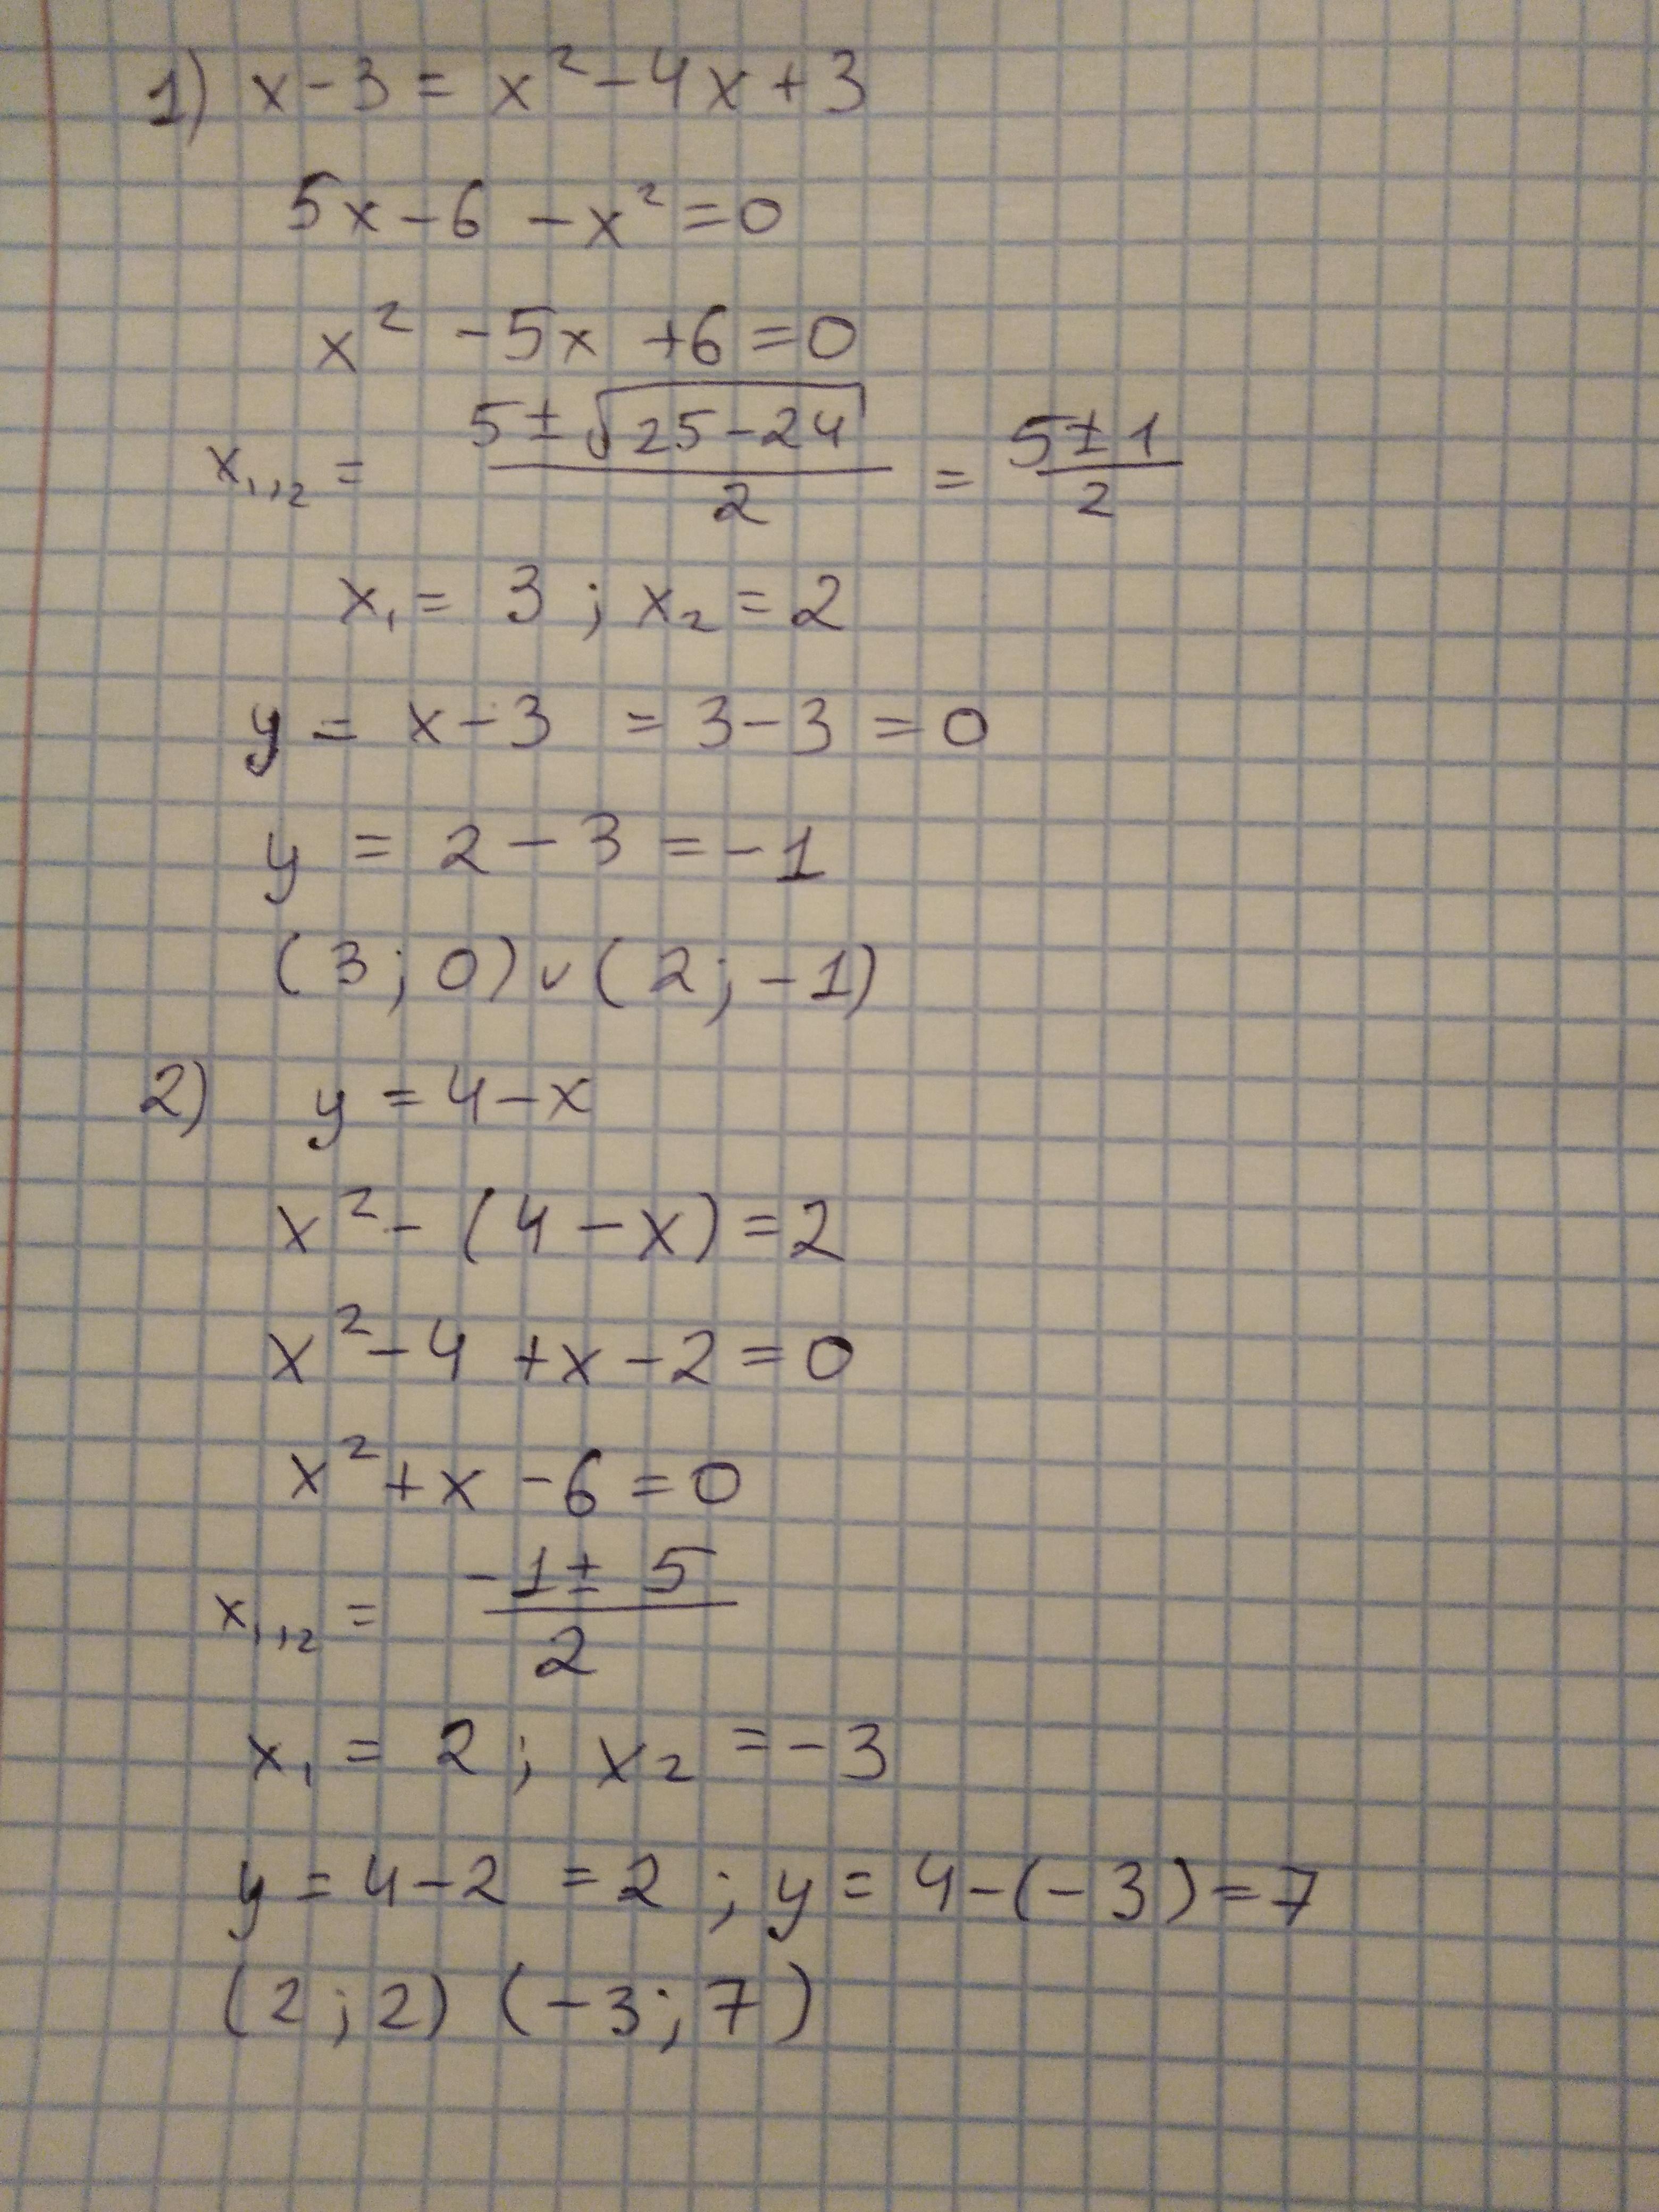 1) x-3 = x²-4x+3
5x-6 -x²=0
x² -5x +6=0
x₁,₂ = (5±√(25-24))/2 = (5±1)/2
x₁= 3 ; x₂ =2
y = x-3 = 3-3 =0
y = 2-3 =-1
(3;0)∨(2;-1)
2) y =4-x
x²-(4-x)=2
x²-4 +x-2=0
x²+x -6=0
x₁,₂ = (-1± 5)/2
x₁ = 2 ; x₂ =-3
y =4-2 =2 ; y= 4-(-3)=7
(2;2) (-3;7)